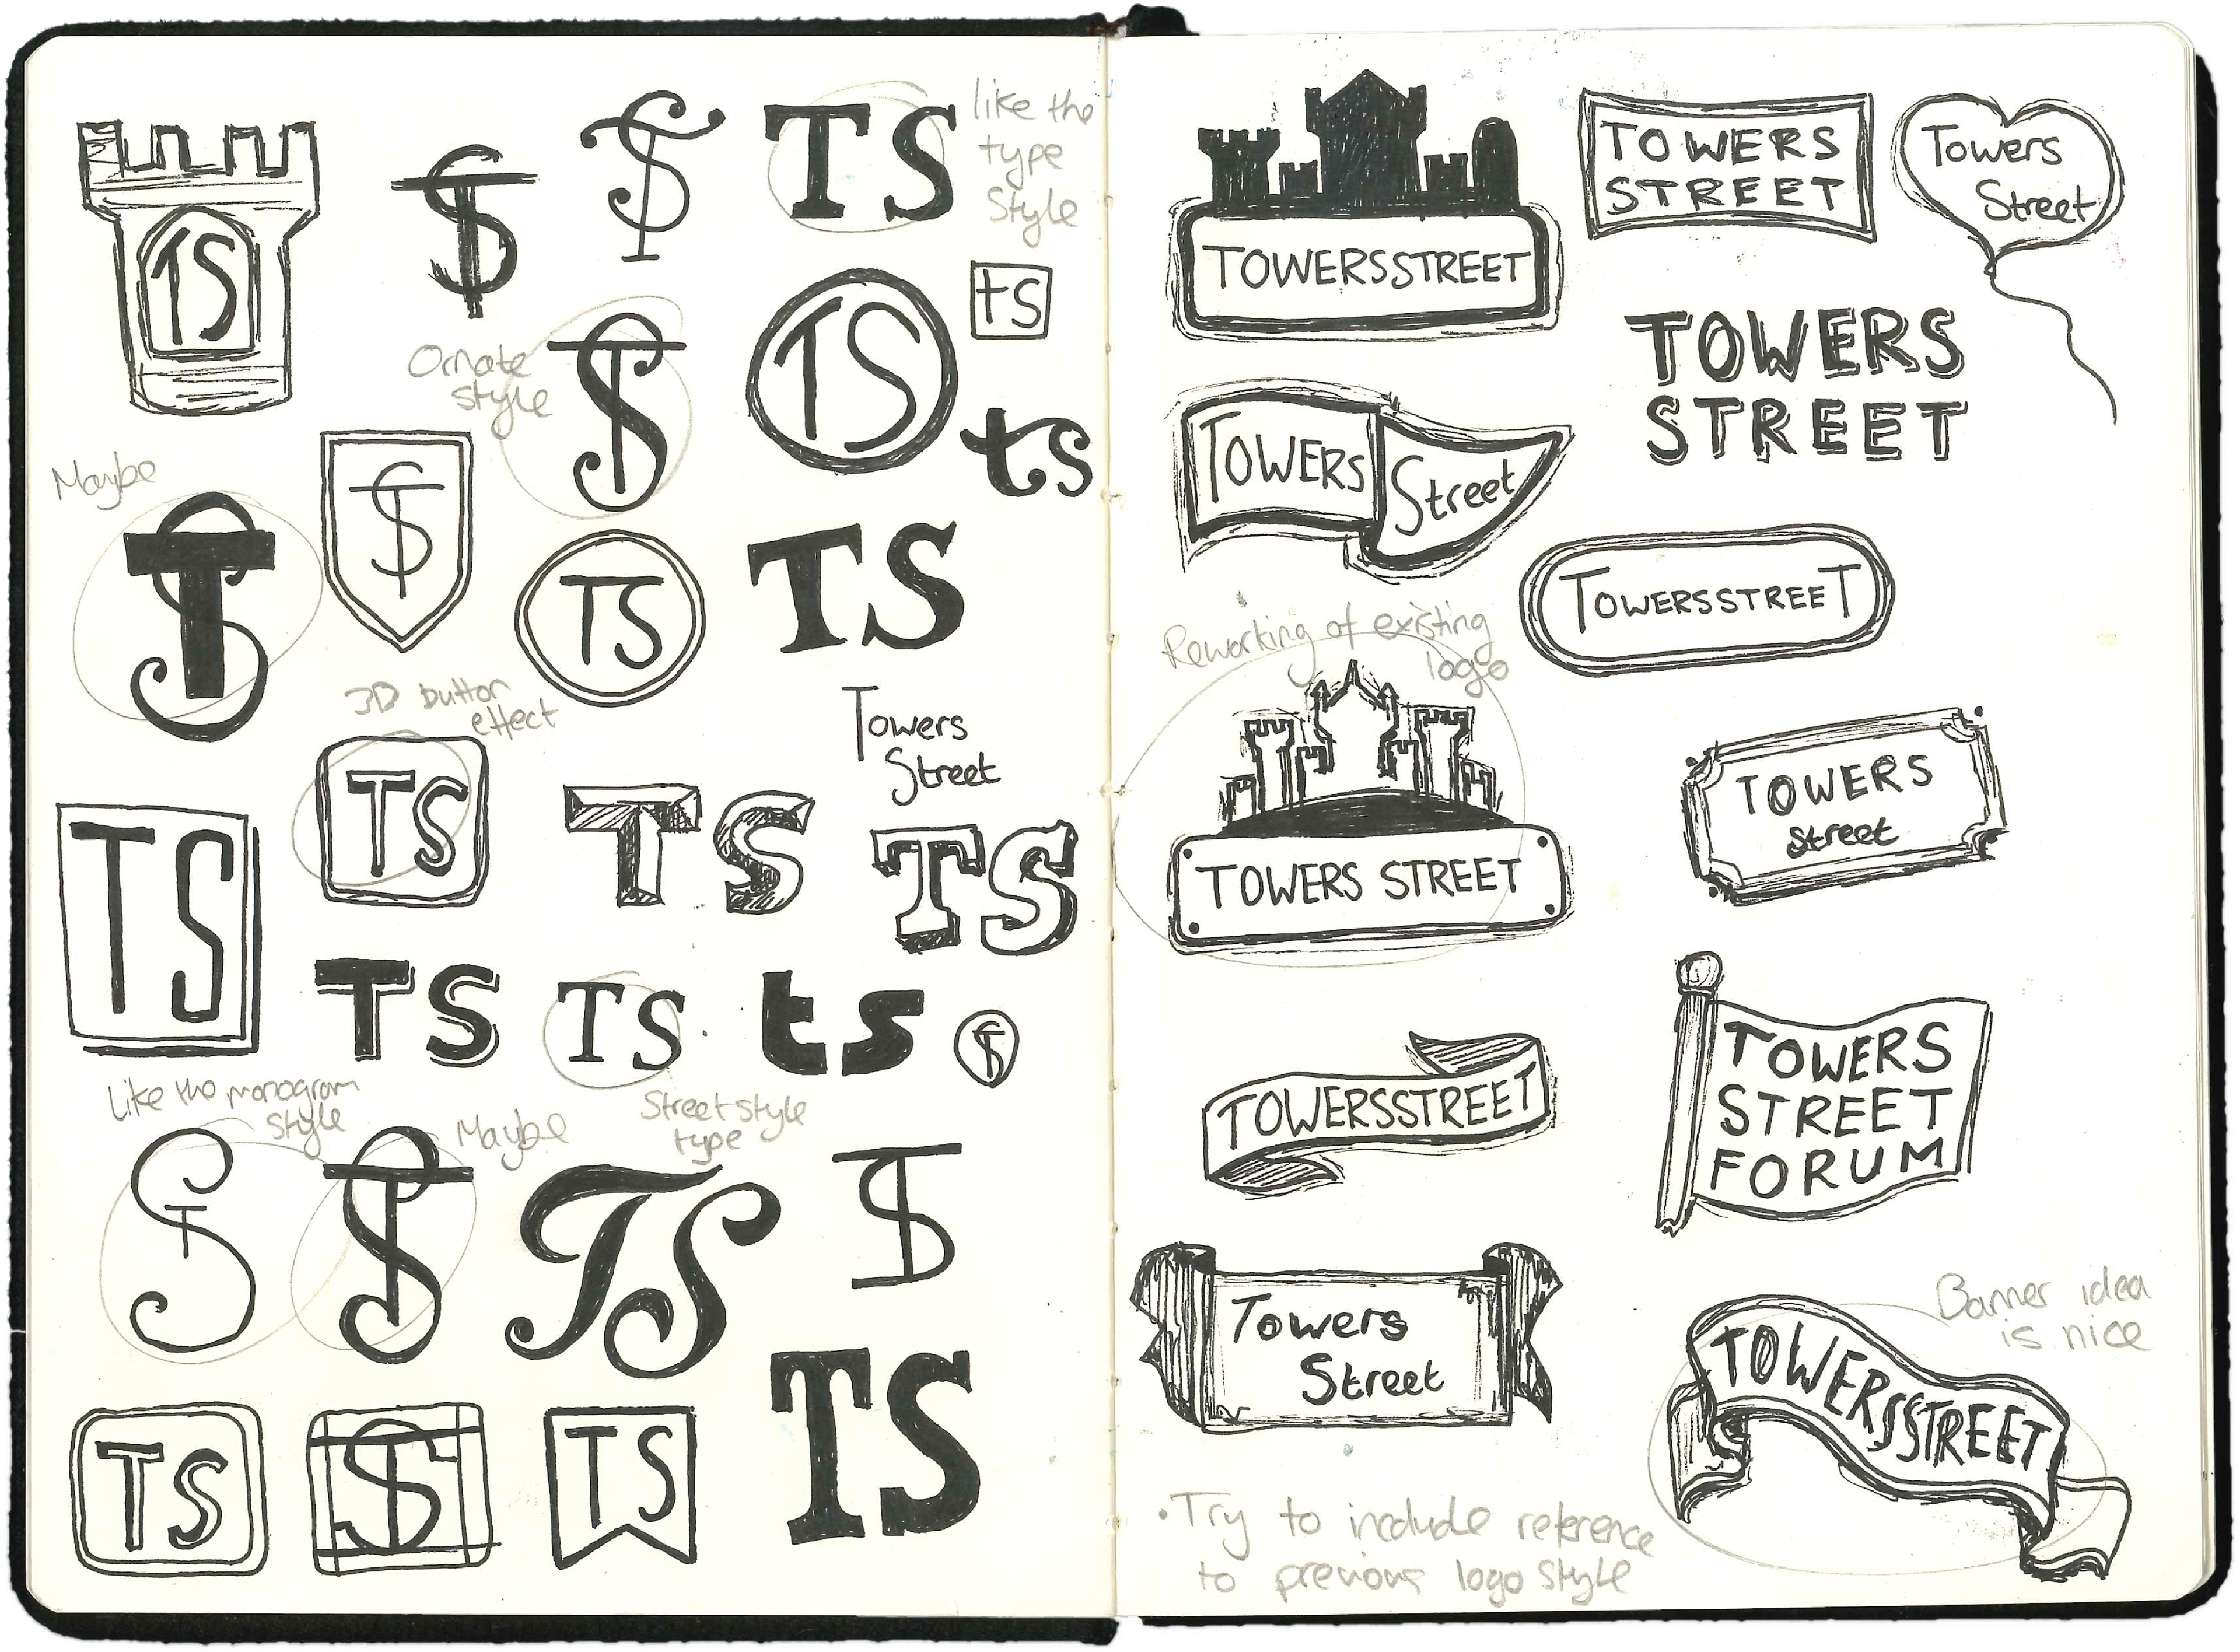 TS
TS
TS
TS
like the
type
Style
ts
TS
Ornate
style
TS
ts
Maybe
TS
TS
TS
TS
3D button
effect
Towers
Street
TS
TS
TS
TS
TS
TS
ts
TS
Like the monogram
style
Maybe
Street style
type
TS
TS
TS
TS
TS
TS
TS
TS
TS
TOWERSSTREET
TOWERS
STREET
Towers
Street
TOWERS
STREET
TOWERS
Street
TOWERSSTREET
Reworking of existing
logo
TOWERS STREET
TOWERS
Street
TOWERSSTREET
TOWERS
STREET
FORUM
Towers
Street
Banner idea
is nice
TOWERSSTREET
• Try to include reference
to previous logo style